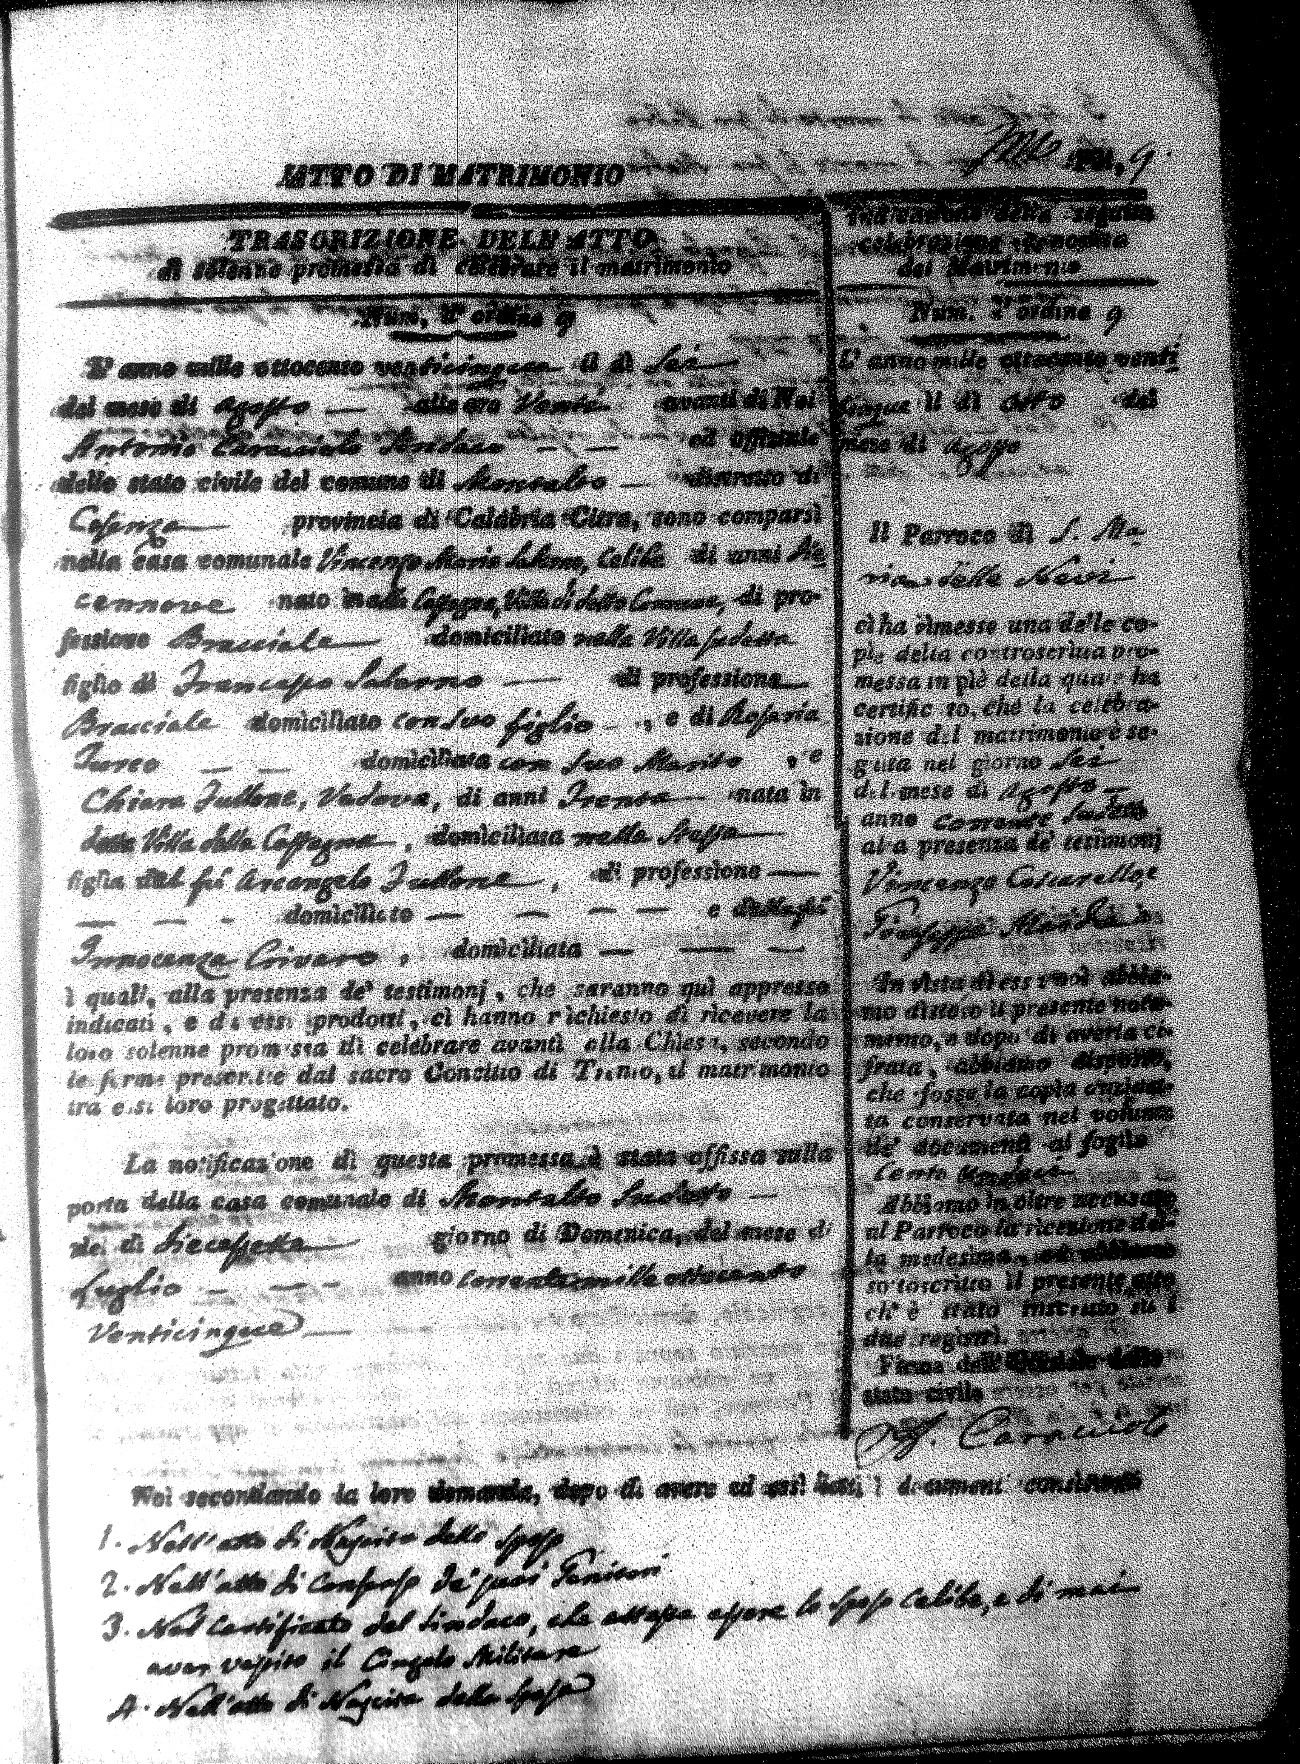 ATTO DI MATRIMONIO
9.
TRASCRIZIONE DELL'ATTO
di solenne promessa di celebrare il matrimonio
Num. d'ordine 9
L'anno mille ottocento venticinque il dì Sei
del mese di Agosto alle ore Venti avanti di Noi
Antonio Caracciolo Sindaco ed Offiziale
dello stato civile del comune di Montalto distretto di
Cosenza provincia di Calabria Citra, sono comparsi
nella casa comunale Vincenzo Maria Salerno, Celibe di anni
nato nella Villa di detto Comune, di pro-
fessione Bracciale domiciliato nella Villa sudetta
figlio di Francesco Salerno di professione
Bracciale domiciliato con suo figlio, e di Rosaria
Turco domiciliata con suo Marito, e
Chiara Fullone, Vedova, di anni Trenta nata in
detta Villa della, domiciliata nella Stessa
figlia del fù Arcangelo Fullone, di professione
domiciliato e della fù
Innocenza Crivaro, domiciliata
i quali, alla presenza de' testimonj, che saranno quì appresso
indicati, e da essi prodotti, ci hanno richiesto di ricevere la
loro solenne promessa di celebrare avanti alla Chiesa, secondo
le forme prescritte dal sacro Concilio di Trento, il matrimonio
tra essi loro progettato.
La notificazione di questa promessa è stata affissa sulla
porta della casa comunale di Montalto Sudetto
nel dì Diecassette giorno di Domenica, del mese di
Luglio anno corrente mille ottocento
Venticinque
Indicazione della seguita
celebrazione canonica
del Matrimonio
Num. d'ordine 9
L'anno mille ottocento venti
cinque il dì otto del
mese di Agosto
Il Parroco di S. Ma-
ria delle Nevi
ci ha rimesse una delle co-
pie della controscritta pro-
messa in piè della quale ha
certificato, che la celebra-
zione del matrimonio è se-
guita nel giorno Sei
del mese di Agosto
anno corrente sudetto
alla presenza de' testimonj
Vincenzo Coscarello, e
Giuseppe
In vista di essa noi abbia-
mo disteso il presente nota-
mento, e dopo di averla ci-
frata, abbiamo disposto,
che fosse la copia anzidet-
ta conservata nel volume
de' documenti al foglio
Cento
Abbiamo in oltre accusato
al Parroco la ricezione del-
la medesima, ed abbiamo
sottoscritto il presente atto
ch' è stato inscritto su i
due registri.
Firma dell'Offiziale dello
stato civile
Caracciolo
Noi secondando la loro domanda, dopo di avere ad essi letti i documenti consistenti
1. Nell'atto di Nascita dello sposo
2. Nell'atto di Consenso de' suoi Genitori
3. Nel Certificato del Sindaco, che attesta essere lo sposo Celibe, e di mai
aver vestito il Cingolo Militare
4. Nell'atto di Nascita della sposa